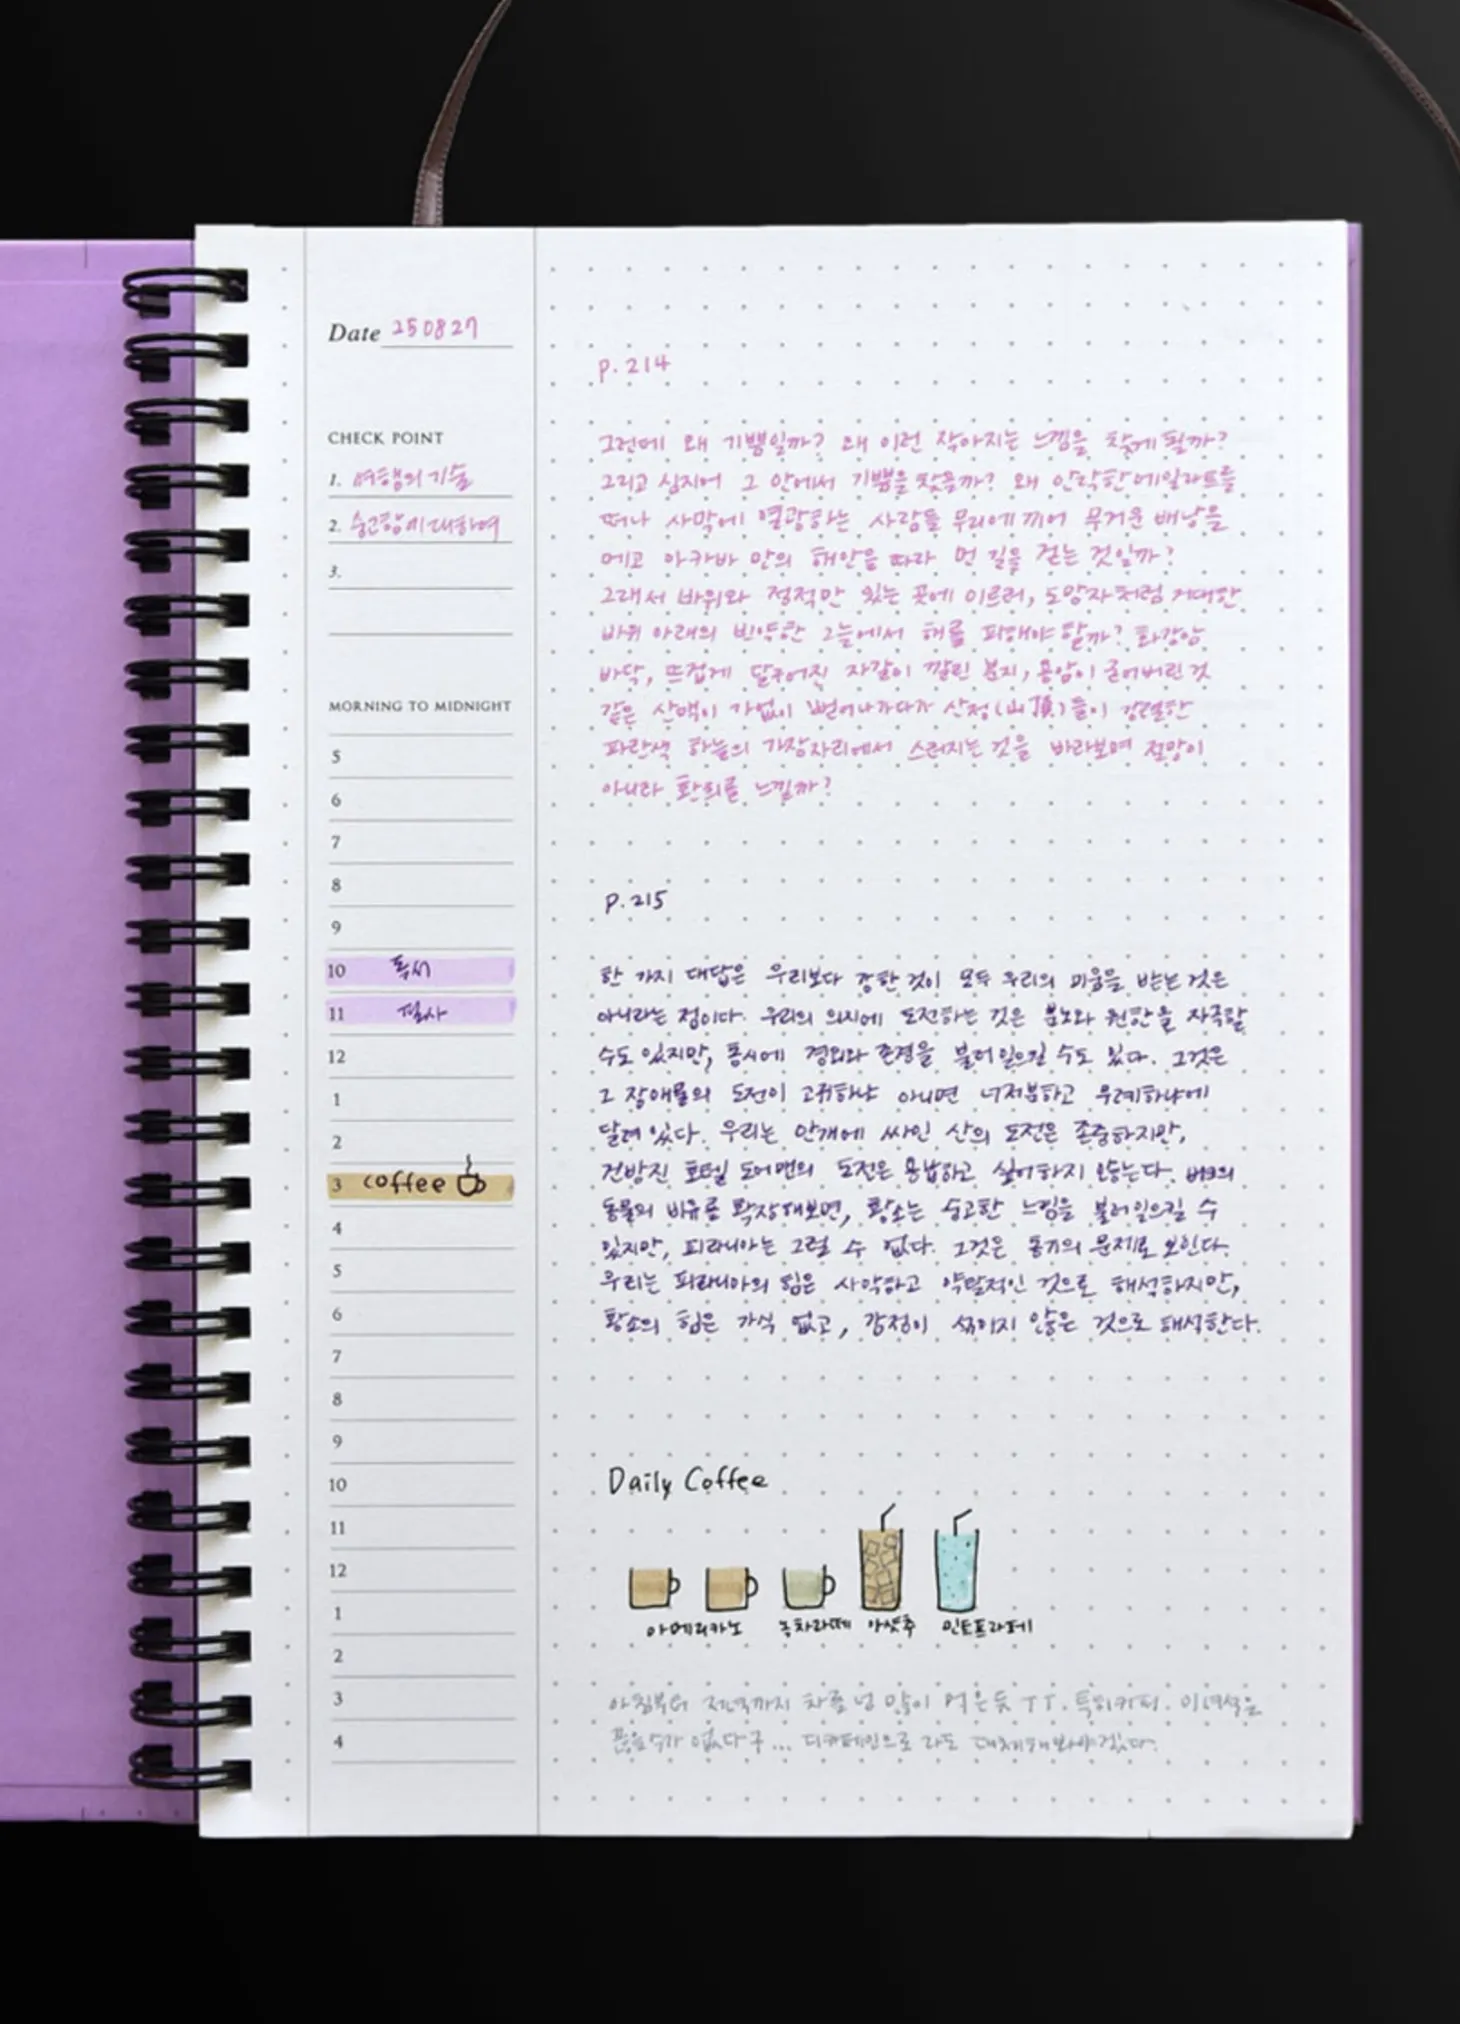 Date 250827
CHECK POINT
1. 여행의 기술
2. 숭고함에 대하여
3.
MORNING TO MIDNIGHT
5
6
7
8
9
10 독서
11 필사
12
1
2
3 coffee
4
5
6
7
8
9
10
11
12
1
2
3
4
p.214
그런데 왜 기쁨일까? 왜 이런 작아지는 느낌을 찾게 될까?
그리고 심지어 그 안에서 기쁨을 찾을까? 왜 안락한 에일라트를
떠나 사막에 열광하는 사람들 무리에 끼어 무거운 배낭을
메고 아카바 만의 해안을 따라 먼 길을 걷는 것일까?
그래서 바위와 정적만 있는 곳에 이르러, 도망자처럼 거대한
바위 아래의 빈약한 그늘에서 해를 피해야 할까? 화강암
바닥, 뜨겁게 달구어진 자갈이 깔린 분지, 용암이 굳어버린 것
같은 산맥이 가없이 뻗어나가다가 산정(山頂)들이 강렬한
파란색 하늘의 가장자리에서 스러지는 것을 바라보며 절망이
아니라 환희를 느낄까?
p.215
한 가지 대답은 우리보다 강한 것이 모두 우리의 미움을 받는 것은
아니라는 점이다. 우리의 의지에 도전하는 것은 분노와 원한을 자극할
수도 있지만, 동시에 경외와 존경을 불러일으킬 수도 있다. 그것은
그 장애물의 도전이 고귀하냐 아니면 너저분하고 무례하냐에
달려 있다. 우리는 안개에 싸인 산의 도전은 존중하지만,
건방진 호텔 도어맨의 도전은 용납하고 싶어하지 않는다. 버크의
동물의 비유를 확장해보면, 황소는 숭고한 느낌을 불러일으킬 수
있지만, 피라니아는 그럴 수 없다. 그것은 동기의 문제로 보인다.
우리는 피라니아의 힘은 사악하고 약탈적인 것으로 해석하지만,
황소의 힘은 가식 없고, 감정이 섞이지 않은 것으로 해석한다.
Daily Coffee
아메리카노 녹차라떼 아샷추 민트프라페
아침부터 저녁까지 차를 넘 많이 먹은듯 ㅜㅜ. 특히 커피. 이녀석을
끊을수가 없다구... 디카페인으로 라도 대체해봐야겠다.